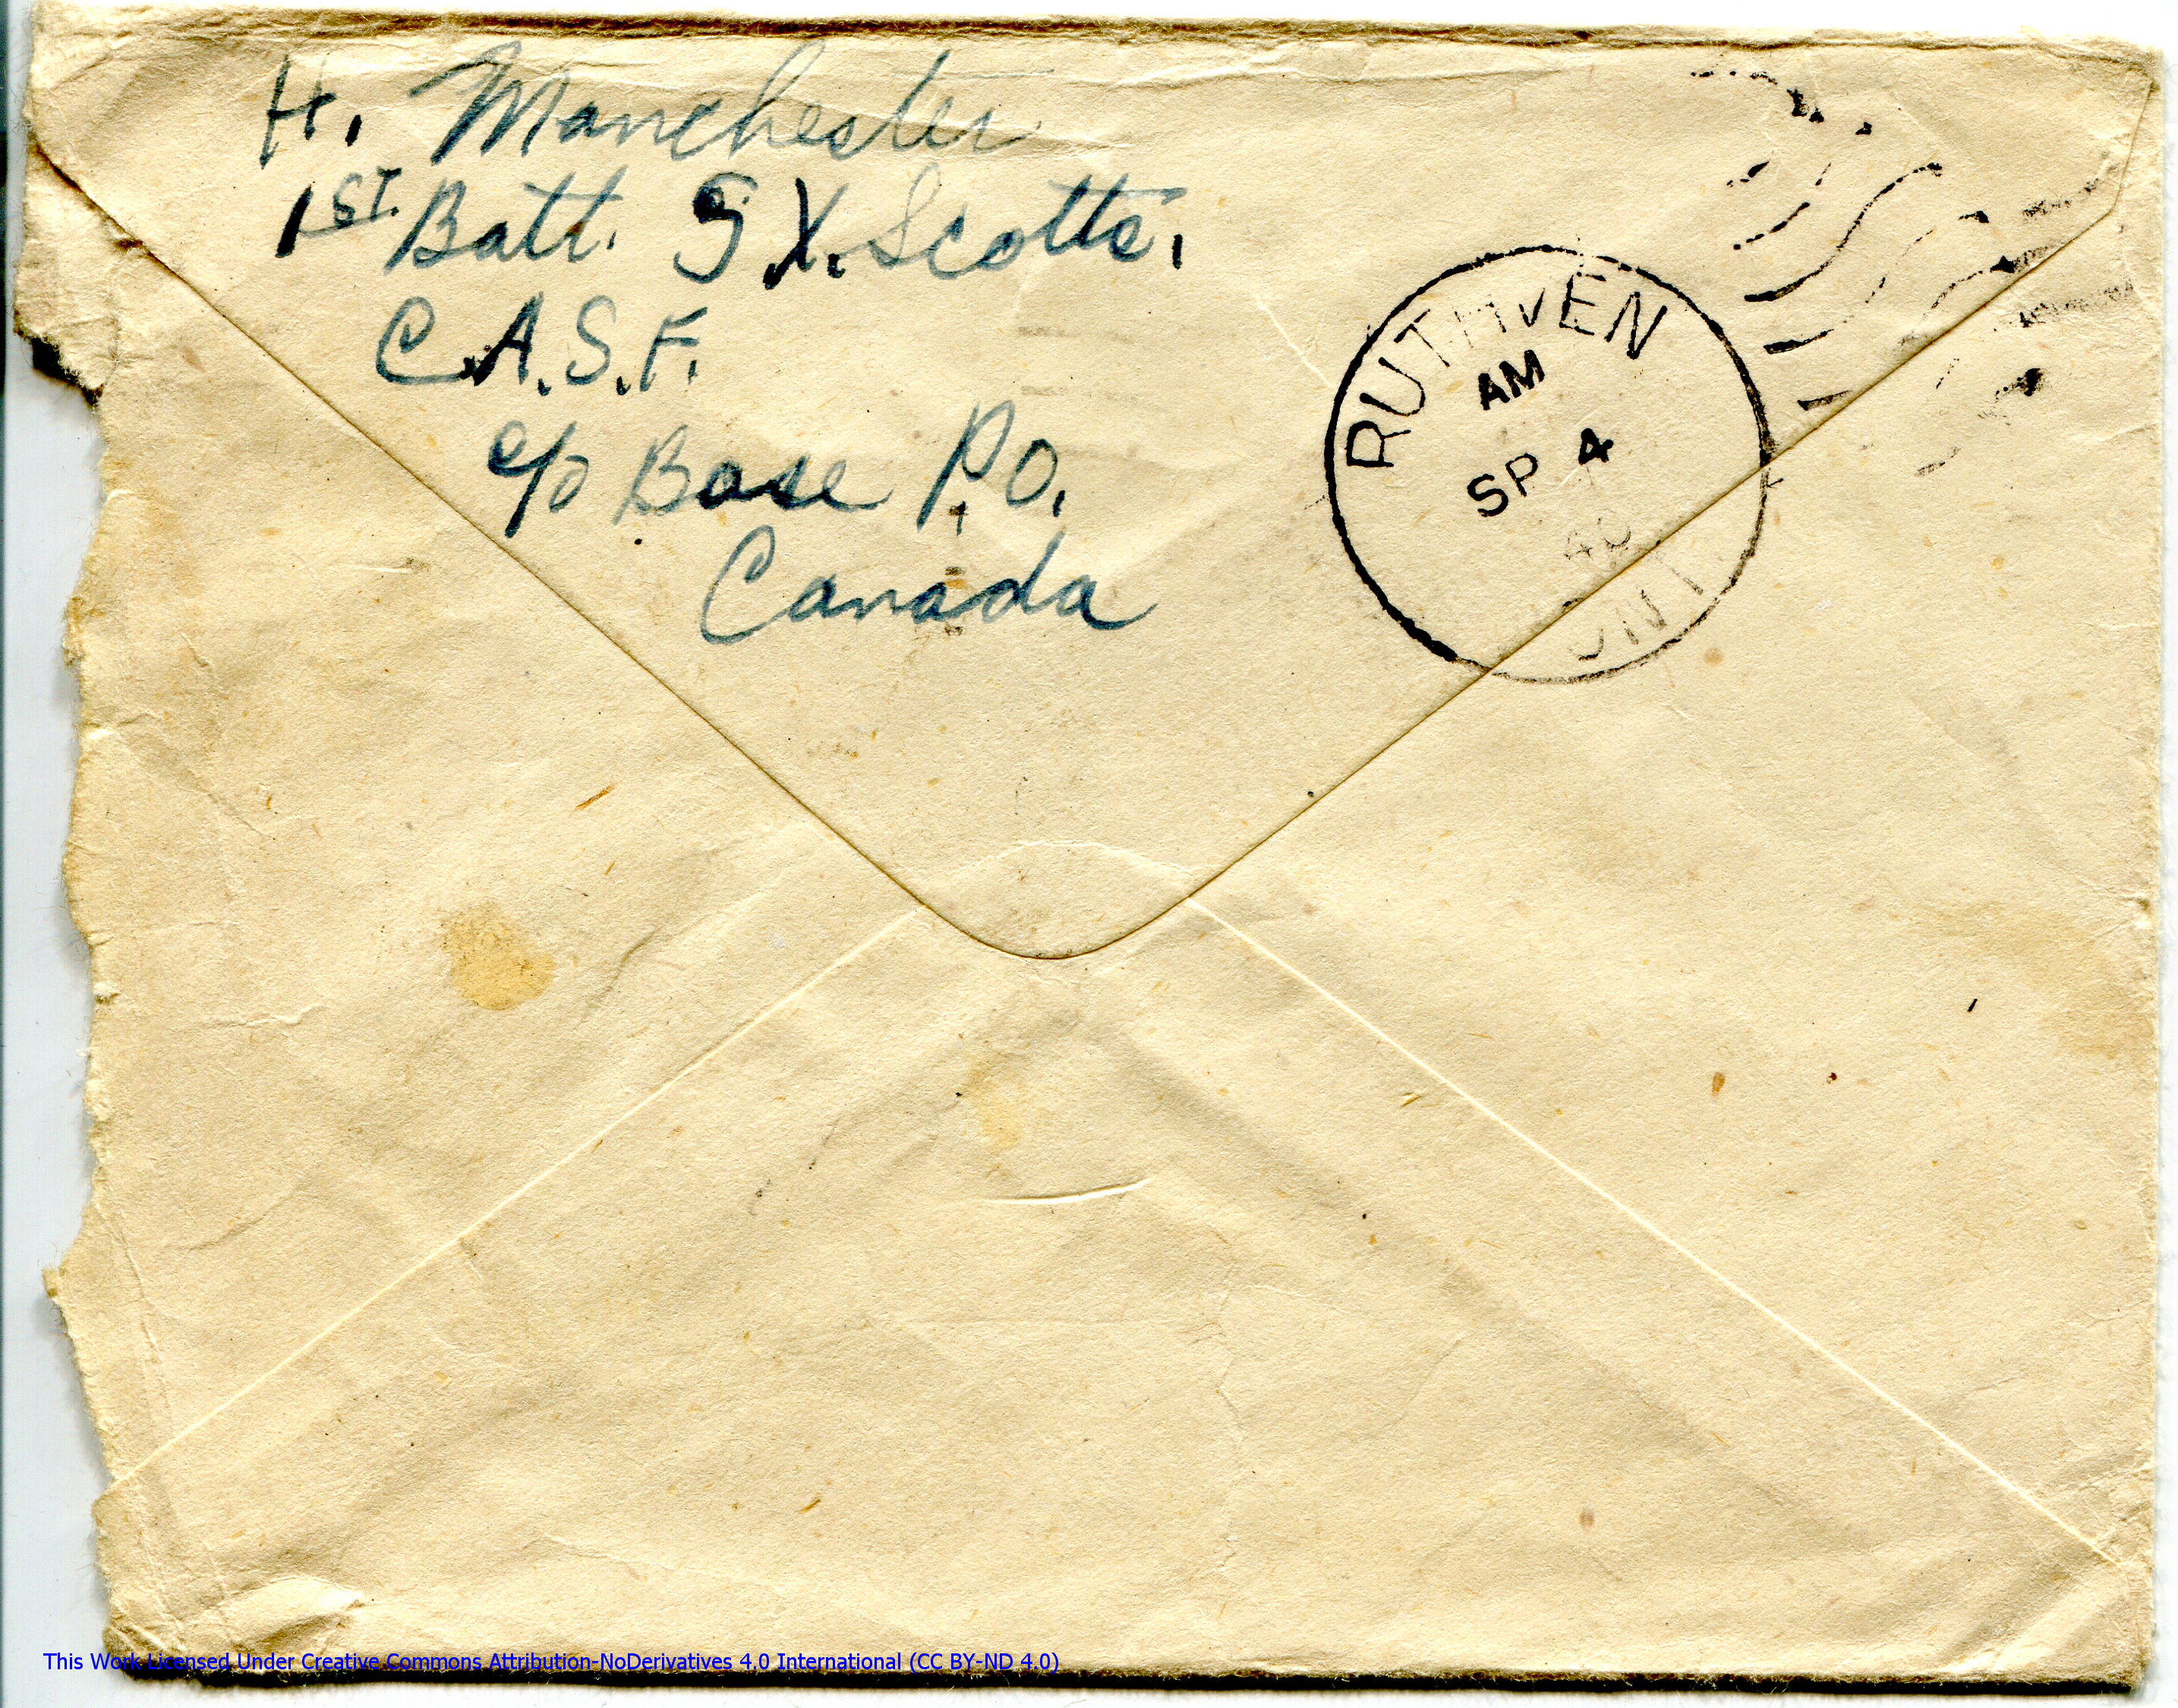 H. Manchester
1ST. Batt. E X. Scotts.
C.A.S.F.
c/o Base P.O.
Canada
RUTHVEN
AM
SP 4
40
ONT
This Work Licensed Under Creative Commons Attribution-NoDerivatives 4.0 International (CC BY-ND 4.0)